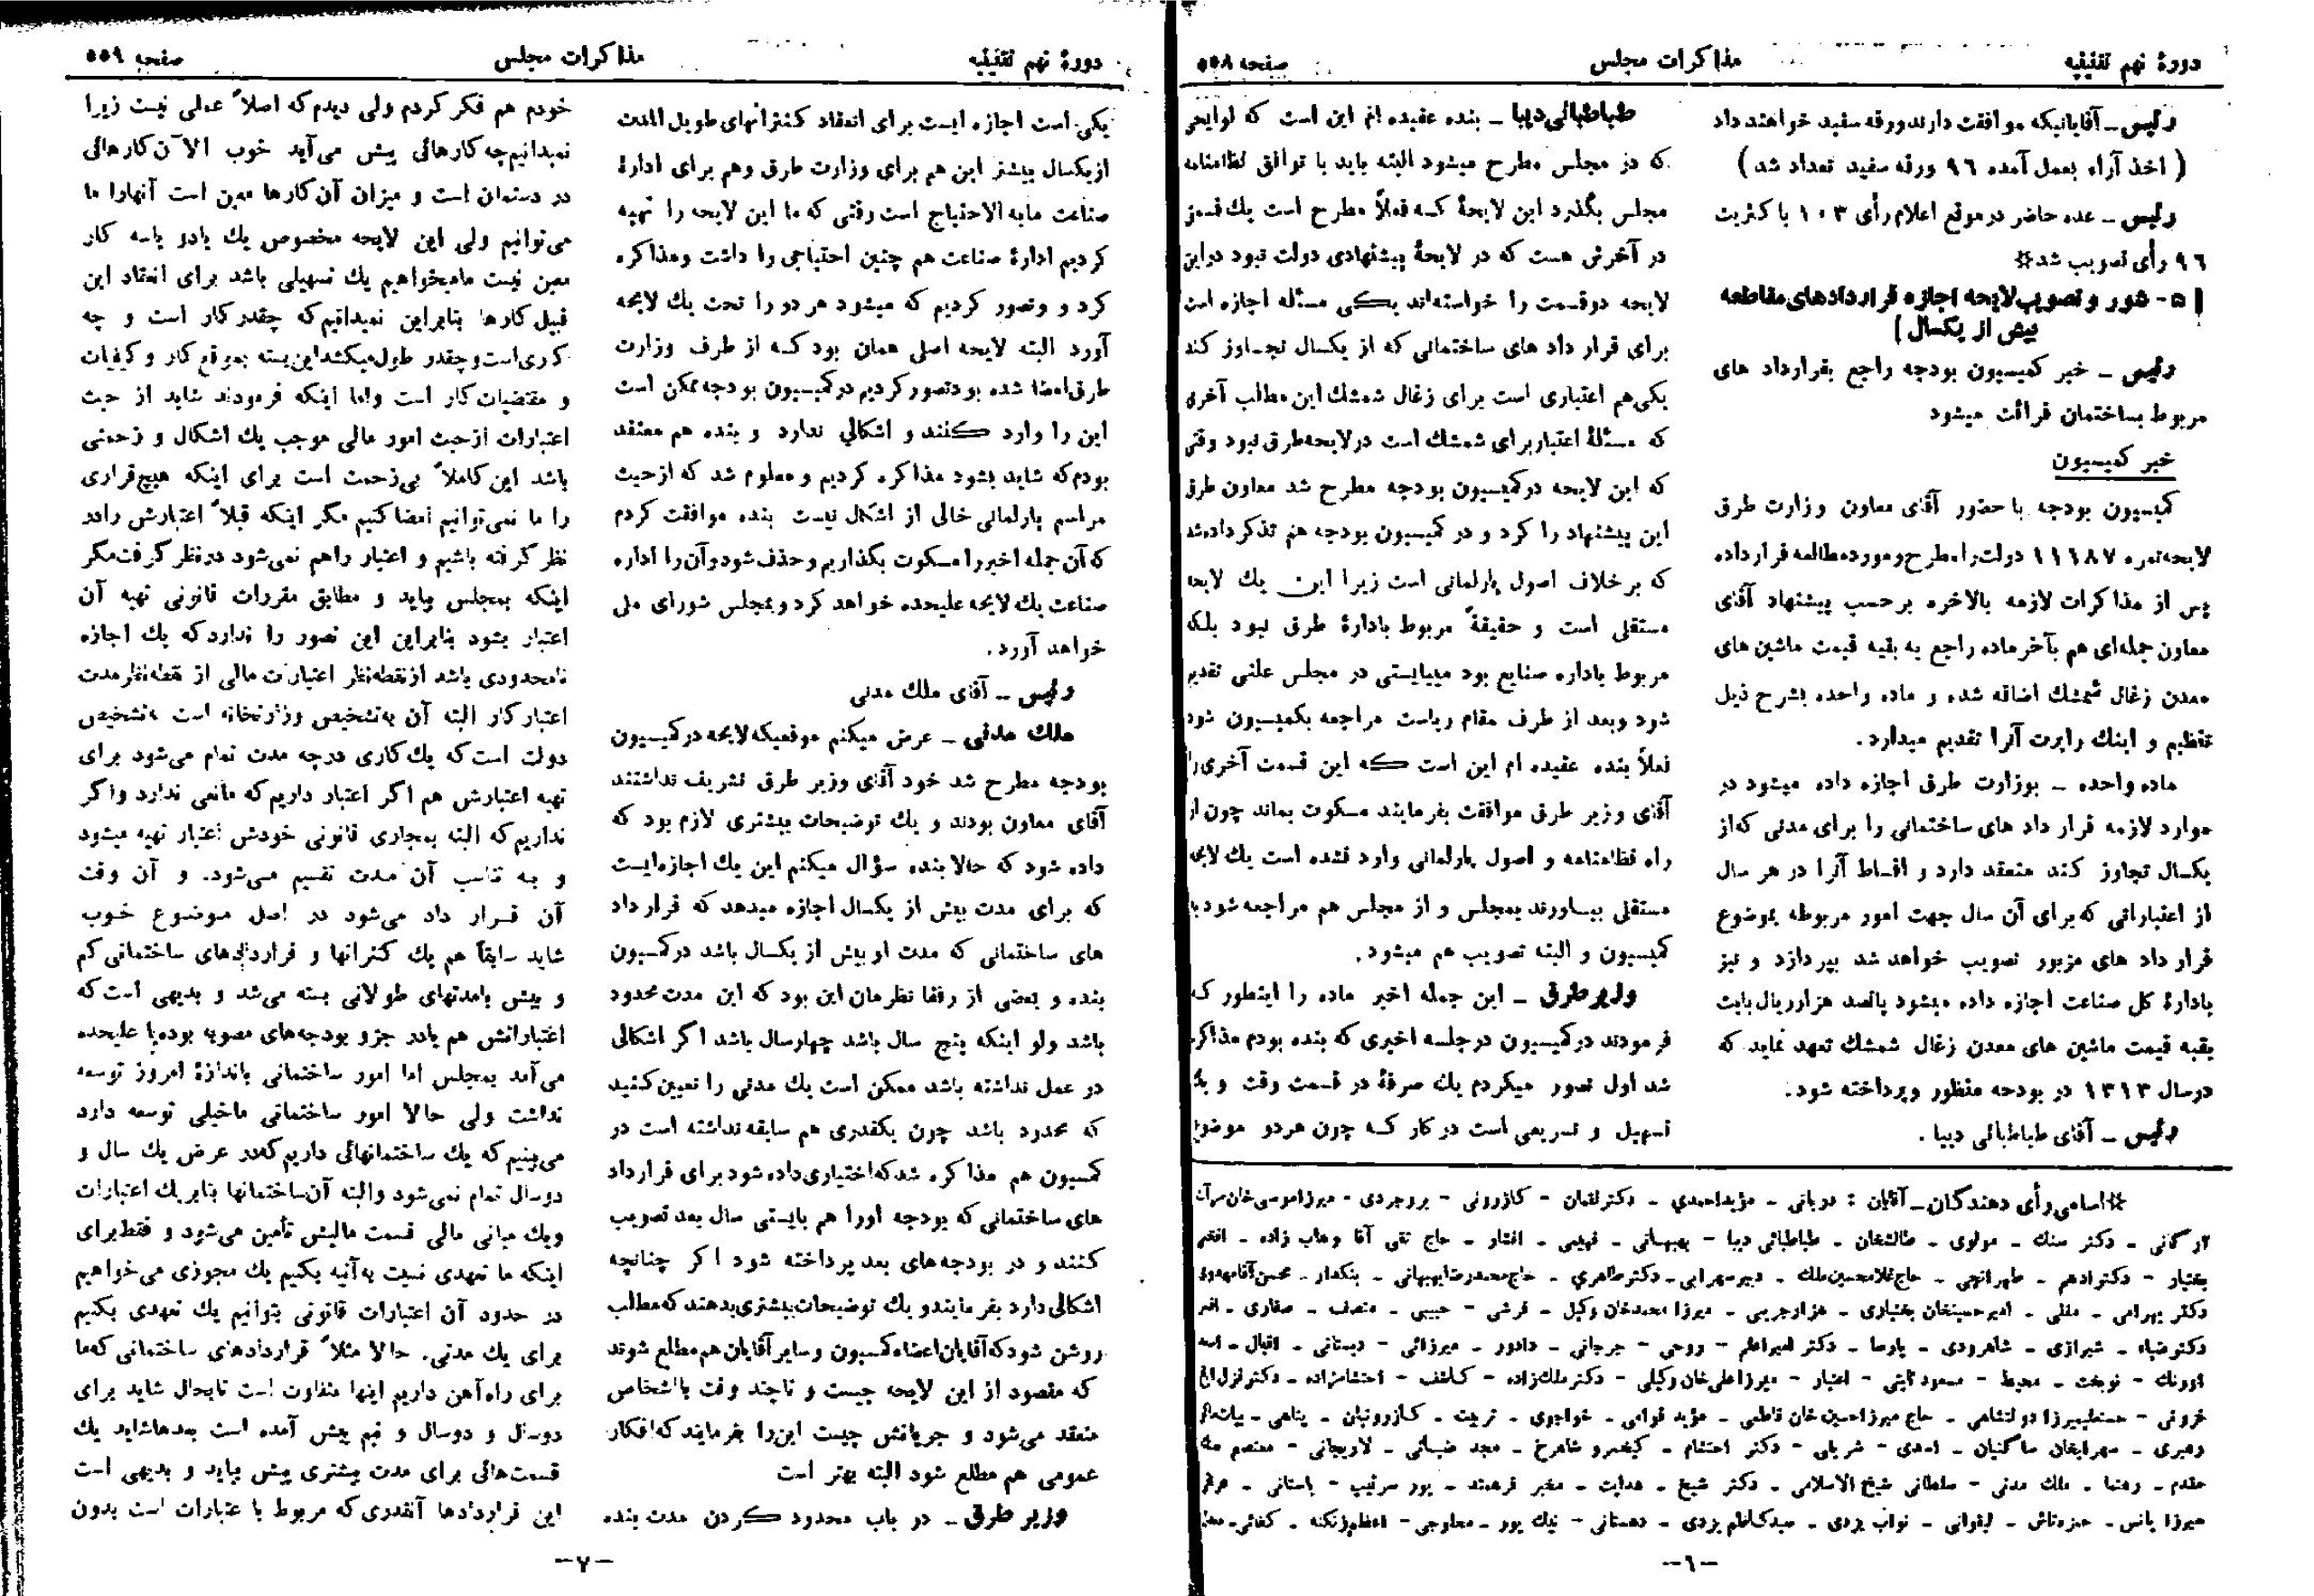 دورهٔ نهم تقنینیه
مذاکرات مجلس
صفحه ۵۵۸
رئیس ــ آقایانیکه موافقت دارند ورقه سفید خواهند داد
( اخذ آراء بعمل آمده ۹۶ ورقه سفید تعداد شد )
رئیس ــ عده حاضر در موقع اعلام رأی ۱۰۳ با کثریت
۹۶ رأی تصویب شد※
[ ۵- شور و تصویب لایحه اجازه قراردادهای مقاطعه
بیش از یکسال ]
رئیس ــ خبر کمیسیون بودجه راجع بقرارداد های
مربوط بساختمان قرائت میشود
خبر کمیسیون
کمیسیون بودجه با حضور آقای معاون وزارت طرق
لایحه نمره ۱۱۱۸۷ دولت را مطرح و مورد مطالعه قرار داده
پس از مذاکرات لازمه بالاخره برحسب پیشنهاد آقای
معاون جمله‌ای هم بآخر ماده راجع به بقیه قیمت ماشین های
معدن زغال شمشك اضافه شده و ماده واحده بشرح ذیل
تنظیم و اینك راپرت آنرا تقدیم میدارد.
ماده واحده ــ بوزارت طرق اجازه داده میشود در
موارد لازمه قرار داد های ساختمانی را برای مدتی که از
یکسال تجاوز کند منعقد دارد و اقساط آنرا در هر سال
از اعتباراتی که برای آن سال جهت امور مربوطه بموضوع
قرار داد های مزبور تصویب خواهد شد بپردازد و نیز
بادارهٔ کل صناعت اجازه داده میشود پانصد هزار ریال بابت
بقیه قیمت ماشین های معدن زغال شمشك تعهد نماید که
در سال ۱۳۱۳ در بودجه منظور و پرداخته شود.
رئیس ــ آقای طباطبائی دیبا .
طباطبائی دیبا ــ بنده عقیده ام این است که لوایحی
که در مجلس مطرح میشود البته باید با توافق نظامنامه
مجلس بگذرد این لایحهٔ که فعلاً مطرح است یك قسمتی
در آخرش هست که در لایحهٔ پیشنهادی دولت نبود در این
لایحه دو قسمت را خواسته‌اند یکی مسئله اجازه است
برای قرار داد های ساختمانی که از یکسال تجاوز کند
یکی هم اعتباری است برای زغال شمشك این مطالب آخری
که مسئلهٔ اعتبار برای شمشك است در لایحه طرق نبود وقتی
که این لایحه در کمیسیون بودجه مطرح شد معاون طرق
این پیشنهاد را کرد و در کمیسیون بودجه هم تذکر داده شد
که برخلاف اصول پارلمانی است زیرا این یك لایحه
مستقلی است و حقیقةً مربوط بادارهٔ طرق نبود بلکه
مربوط باداره صنایع بود میبایستی در مجلس علنی تقدیم
شود و بعد از طرف مقام ریاست مراجعه بکمیسیون شود
فعلاً بنده عقیده ام این است که این قسمت آخری را
آقای وزیر طرق موافقت بفرمایند مسکوت بماند چون از
راه نظامنامه و اصول پارلمانی وارد نشده است یك لایحه
مستقلی بیاورند بمجلس و از مجلس هم مراجعه شود به
کمیسیون و البته تصویب هم میشود.
وزیر طرق ــ این جمله اخیر ماده را اینطور که
فرمودند در کمیسیون در جلسه اخیری که بنده بودم مذاکره
شد اول تصور میکردم یك صرفهٔ در قسمت وقت و یك
تسهیل و تسریعی است در کار که چون هردو موضوع
※اسامی رأی دهندگان ــ آقایان : دربانی - مؤید احمدی - دکتر لقمان - کازرونی - بروجردی - میرزا موسی خان مرآت
ارگانی - دکتر سنك - مولوی - طالشخان - طباطبائی دیبا - بهبهانی - فهیمی - افشار - حاج تقی آقا وهاب زاده - افخر
بختیار - دکتر ادهم - طهرانچی - حاج غلامحسین ملك - دبیر سهرابی - دکتر طاهری - حاج محمدرضا بهبهانی - بنکدار - محسن آقا مهدوی
دکتر بهرامی - ملکی - امیر حسینخان بختیاری - هزارجریبی - میرزا محمدخان وکیل - قرشی - حبیبی - منصف - صفاری - افسر
دکتر ضیاء - شیرازی - شاهرودی - پارسا - دکتر امیر اعلم - روحی - جرجانی - دادور - میرزائی - دبستانی - اقبال - اسعد
اورنك - نوبخت - محیط - مسعود ثابتی - اعتبار - میرزا علی خان وکیلی - دکتر ملك زاده - کاشف - احتشام‌زاده - دکتر قزل ایاغ
فزونی - حسنعلی میرزا دولتشاهی - حاج میرزا حسین خان فاطمی - مؤید قوامی - خواجوی - تربیت - کازرونیان - پناهی - بیات ماکو
رهبری - سهرابخان ساگنیان - اسدی - شریفی - دکتر احتشام - کیخسرو شاهرخ - مجد ضیائی - لاریجانی - معتصم سنك
مقدم - رهنما - ملك مدنی - سلطانی شیخ الاسلامی - دکتر شیخ - هدایت - مخبر فرهمند - پور سرتیپ - باستانی - عراقی
میرزا یانس - حمزه‌تاش - لیقوانی - نواب یزدی - سید کاظم یزدی - دهستانی - نیك پور - معاونی - اعظم زنگنه - کفائی - معدل
ــ ٦ ــ
دورهٔ نهم تقنینیه
مذاکرات مجلس
صفحه ۵۵۹
یکی است اجازه ایست برای انعقاد کنتراتهای طویل المدت
از یکسال بیشتر این هم برای وزارت طرق و هم برای ادارهٔ
صناعت مابه الاحتیاج است وقتی که ما این لایحه را تهیه
کردیم ادارهٔ صناعت هم چنین احتیاجی را داشت و مذاکره
کرد و تصور کردیم که میشود هر دو را تحت یك لایحه
آورد البته لایحه اصلی همان بود که از طرف وزارت
طرق امضا شده بود تصور کردیم در کمیسیون بودجه ممکن است
این را وارد کنند و اشکالی ندارد و بنده هم معتقد
بودم که شاید بشود مذاکره کردیم و معلوم شد که از حیث
مراسم پارلمانی خالی از اشکال نیست بنده موافقت کردم
که آن جمله اخیر را مسکوت بگذاریم و حذف شود و آن را اداره
صناعت یك لایحه علیحده خواهد کرد و بمجلس شورای ملی
خواهد آورد.
رئیس ــ آقای ملك مدنی
ملك مدنی ــ عرض میکنم موقعیکه لایحه در کمیسیون
بودجه مطرح شد خود آقای وزیر طرق تشریف نداشتند
آقای معاون بودند و یك توضیحات بیشتری لازم بود که
داده شود که حالا بنده سؤال میکنم این یك اجازه‌ایست
که برای مدت بیش از یکسال اجازه میدهد که قرار داد
های ساختمانی که مدت او بیش از یکسال باشد در کمسیون
بنده و بعضی از رفقا نظرمان این بود که این مدت محدود
باشد ولو اینکه پنج سال باشد چهارسال باشد اگر اشکالی
در عمل نداشته باشد ممکن است یك مدتی را تعیین کنید
که محدود باشد چون یکقدری هم سابقه نداشته است در
کمسیون هم مذاکره شد که اختیاری داده شود برای قرارداد
های ساختمانی که بودجه اورا هم بایستی سال بعد تصویب
کنند و در بودجه‌های بعد پرداخته شود اگر چنانچه
اشکالی دارد بفرمایند و یك توضیحات بیشتری بدهند که مطلب
روشن شود که آقایان اعضاء کمسیون و سایر آقایان هم مطلع شوند
که مقصود از این لایحه چیست و تا چند وقت با اشخاص
منعقد می‌شود و جریانش چیست این را بفرمایند که افکار
عمومی هم مطلع شود البته بهتر است
وزیر طرق ــ در باب محدود کردن مدت بنده
خودم هم فکر کردم ولی دیدم که اصلاً عملی نیست زیرا
نمیدانیم چه کارهائی پیش می‌آید خوب الآن کارهائی
در دستمان است و میزان آن کارها معین است آنهارا ما
می‌توانیم ولی این لایحه مخصوص یك یا دو یا سه کار
معین نیست ما میخواهیم یك تسهیلی باشد برای انعقاد این
قبیل کارها بنابراین نمیدانیم که چقدر کار است و چه
کاری است و چقدر طول میکشد این بسته بموقع کار و کیفیات
و مقتضیات کار است واما اینکه فرمودند شاید از حیث
اعتبارات از حیث امور مالی موجب یك اشکال و زحمتی
باشد این کاملاً بی زحمت است برای اینکه هیچ قراری
را ما نمی‌توانیم امضا کنیم مگر اینکه قبلاً اعتبارش را در
نظر گرفته باشیم و اعتبار را هم نمی‌شود در نظر گرفت مگر
اینکه بمجلس بیاید و مطابق مقررات قانونی تهیه آن
اعتبار بشود بنابراین این تصور را ندارد که یك اجازه
نامحدودی باشد از نقطه نظر اعتبارات مالی از نقطه نظر مدت
اعتبار کار البته آن به تشخیص وزارتخانه است به تشخیص
دولت است که یك کاری در چه مدت تمام می‌شود برای
تهیه اعتبارش هم اگر اعتبار داریم که مانعی ندارد واگر
نداریم که البته بمجاری قانونی خودش اعتبار تهیه میشود
و به تناسب آن مدت تقسیم می‌شود. و آن وقت
آن قرار داد می‌شود در اصل موضوع خوب
شاید سابقاً هم یك کنتراتها و قراردادهای ساختمانی کم
و بیش با مدتهای طولانی بسته می‌شد و بدیهی است که
اعتباراتش هم یا در جزو بودجه‌های مصوبه بوده یا علیحده
می‌آمد بمجلس اما امور ساختمانی باندازهٔ امروز توسعه
نداشت ولی حالا امور ساختمانی ما خیلی توسعه دارد
می‌بینیم که یك ساختمانهائی داریم که در عرض یك سال و
دوسال تمام نمی‌شود والبته آن ساختمانها بنابر یك اعتبارات
ویك مبانی مالی قسمت مالیش تأمین می‌شود و فقط برای
اینکه ما تعهدی نسبت به آتیه بکنیم یك مجوزی می‌خواهیم
در حدود آن اعتبارات قانونی بتوانیم یك تعهدی بکنیم
برای یك مدتی. حالا مثلاً قراردادهای ساختمانی که ما
برای راه‌آهن داریم اینها متفاوت است تابحال شاید برای
دوسال و دوسال و نیم پیش آمده است بعدها شاید یك
قسمت‌هائی برای مدت بیشتری پیش بیاید و بدیهی است
این قراردادها آنقدری که مربوط با عتبارات است بدون
ــ ۷ ــ